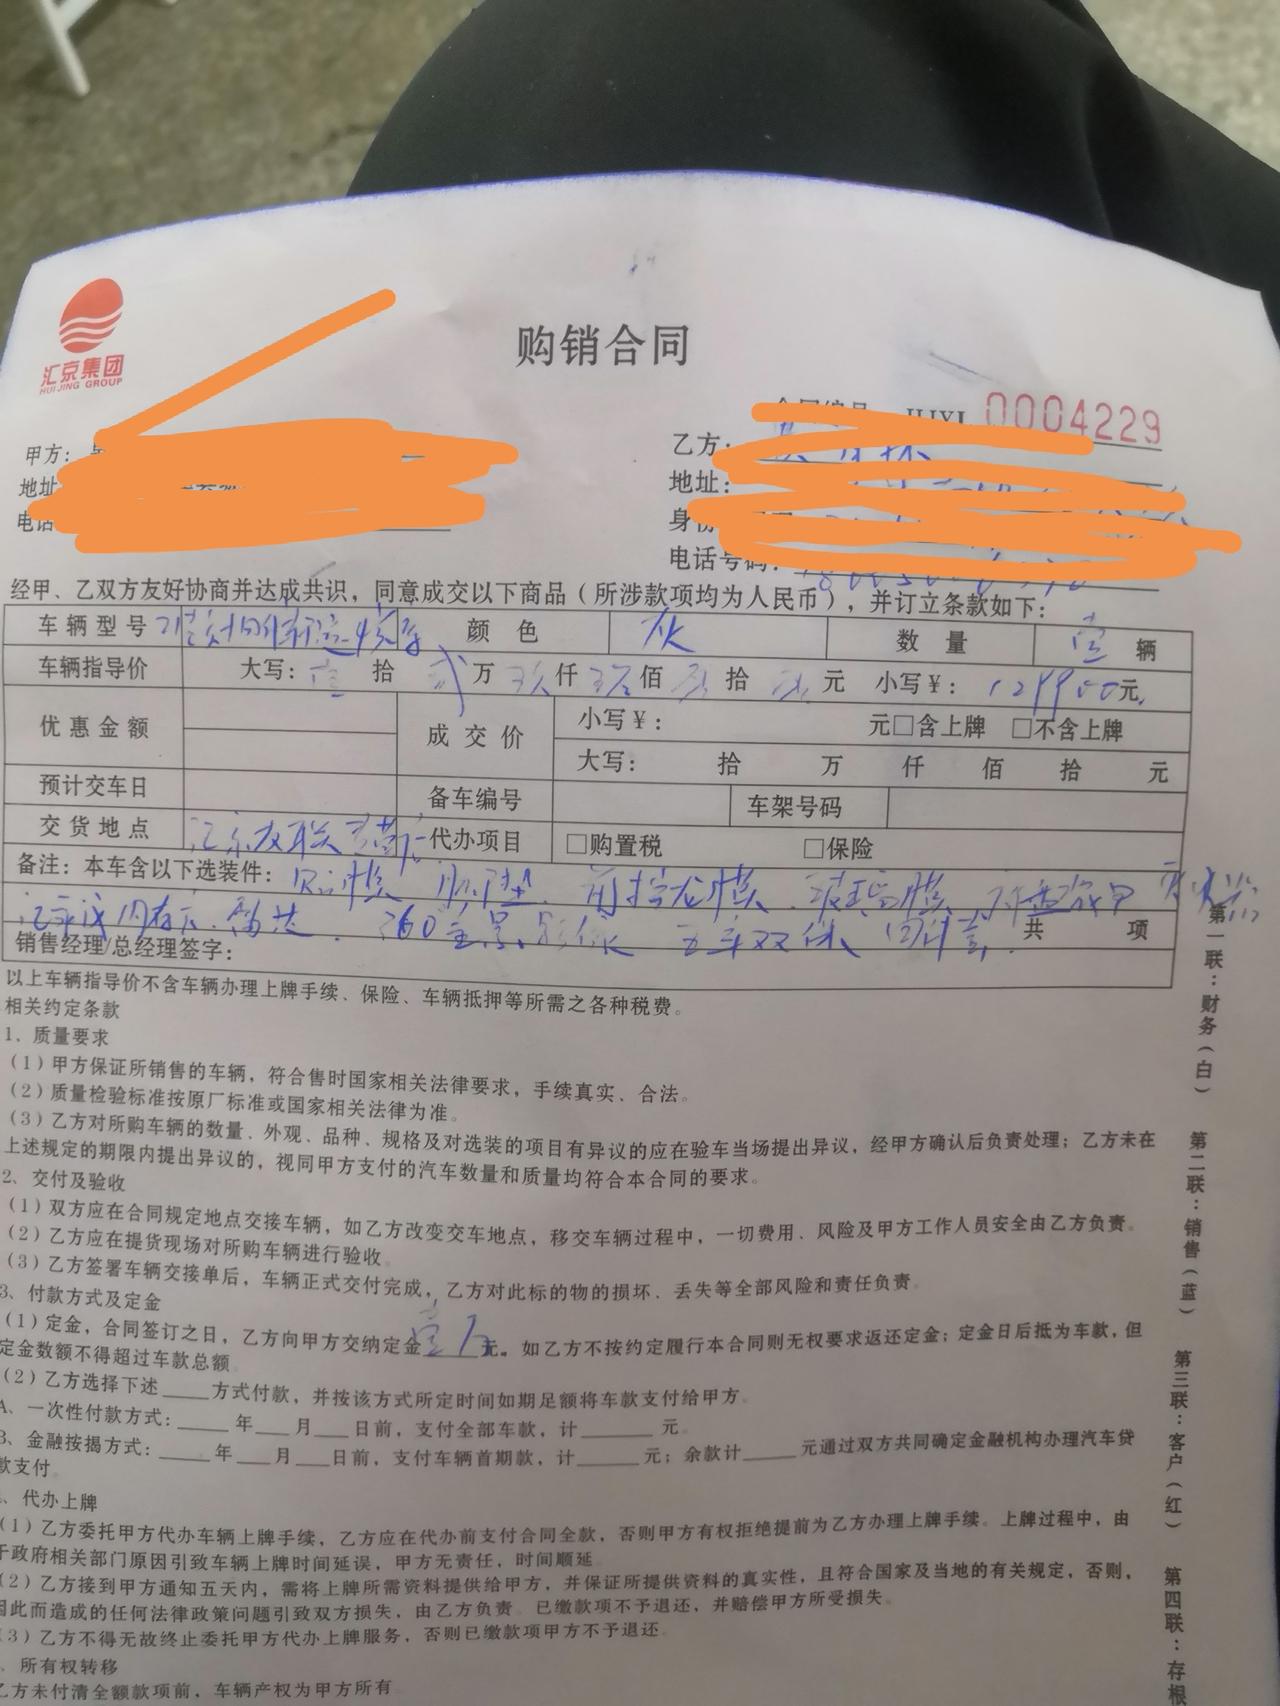 汇京集团
HUI JING GROUP
购销合同
0004229
甲方:
乙方:
地址
地址:
电话
电话号码:
经甲、乙双方友好协商并达成共识，同意成交以下商品（所涉款项均为人民币），并订立条款如下:
车辆型号 颜 色 灰 数 量 壹 辆
车辆指导价 大写: 壹 拾 贰 万 玖 仟 玖 佰 拾 元 小写￥: 129900元
优惠金额 成交价 小写￥: 元□含上牌 □不含上牌
大写: 拾 万 仟 佰 拾 元
预计交车日 备车编号 车架号码
交货地点 汇京友联 代办项目 □购置税 □保险
备注: 本车含以下选装件: 脚垫
360全景影像 五年双保 共 项
销售经理/总经理签字:
以上车辆指导价不含车辆办理上牌手续、保险、车辆抵押等所需之各种税费。
相关约定条款
1、质量要求
(1)甲方保证所销售的车辆，符合售时国家相关法律要求，手续真实、合法。
(2)质量检验标准按原厂标准或国家相关法律为准。
(3)乙方对所购车辆的数量、外观、品种、规格及对选装的项目有异议的应在验车当场提出异议，经甲方确认后负责处理；乙方未在
上述规定的期限内提出异议的，视同甲方支付的汽车数量和质量均符合本合同的要求。
2、交付及验收
(1)双方应在合同规定地点交接车辆，如乙方改变交车地点，移交车辆过程中，一切费用、风险及甲方工作人员安全由乙方负责。
(2)乙方应在提货现场对所购车辆进行验收。
(3)乙方签署车辆交接单后，车辆正式交付完成，乙方对此标的物的损坏、丢失等全部风险和责任负责。
3、付款方式及定金
(1)定金，合同签订之日，乙方向甲方交纳定金壹万元。如乙方不按约定履行本合同则无权要求返还定金；定金日后抵为车款，但
定金数额不得超过车款总额。
(2)乙方选择下述____方式付款，并按该方式所定时间如期足额将车款支付给甲方。
A、一次性付款方式: ____ 年 ___ 月 ___ 日前，支付全部车款，计______ 元。
B、金融按揭方式: ____ 年 ___ 月 ___ 日前，支付车辆首期款，计_____ 元；余款计____ 元通过双方共同确定金融机构办理汽车贷
款支付。
、代办上牌
(1)乙方委托甲方代办车辆上牌手续，乙方应在代办前支付合同全款，否则甲方有权拒绝提前为乙方办理上牌手续。上牌过程中，由
于政府相关部门原因引致车辆上牌时间延误，甲方无责任，时间顺延。
(2)乙方接到甲方通知五天内，需将上牌所需资料提供给甲方，并保证所提供资料的真实性，且符合国家及当地的有关规定，否则，
因此而造成的任何法律政策问题引致双方损失，由乙方负责。已缴款项不予退还，并赔偿甲方所受损失。
(3)乙方不得无故终止委托甲方代办上牌服务，否则已缴款项甲方不予退还。
、所有权转移
乙方未付清全额款项前，车辆产权为甲方所有
第一联：财务（白）
第二联：销售（蓝）
第三联：客户（红）
第四联：存根